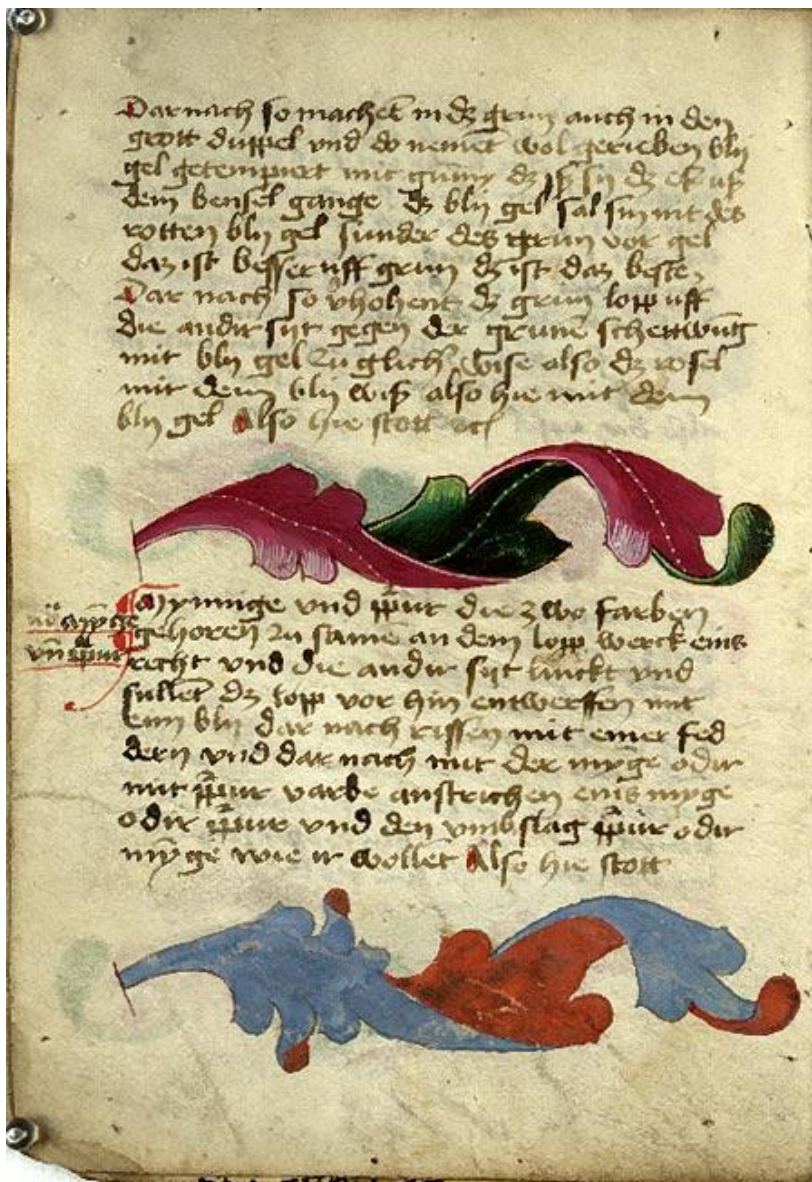 Dar nach so machet in dz grun auch in den
grott duppel vnd do nemēt wol gerieben blij
gel getempriert mit gūmy dz iß sij dz ek uß
dem bensel gange dz blij gel sal sin nit des
rotten blij gel sunder des grun vor gel
daz ist besser uff grun dz ist daz beste
Dar nach so v̾hohent dz grun lopp uff
die andir sijt gegen der grunē schettwūg
mit blij gel zu glich wise also dz rosel
mit dem blij wiß also hie mit dem
blij gel Also hie stott
Mynnige vnd pp̄ur die zwo farben
gehoren zu samē an dem lopp werck eins
recht vnd die andir sijt linckt vnd
sullēt dz lopp vor hin entwerffen mit
eim blij dar nach rissen mit einer fed
dern vnd dar nach mit der mȳge odir
mit pp̄ur varbe anstrichen eins mȳge
odir pp̄ur vnd den vmbslag pp̄ur odir
mȳge wie ir wollēt Also hie stott